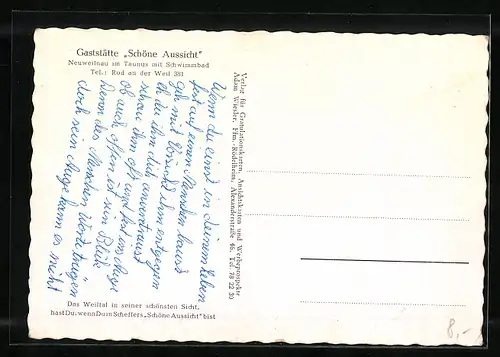 Gaststätte „Schöne Aussicht"
Neuweilnau im Taunus mit Schwimmbad
Tel.: Rod an der Weil 381
Wenn du einst in deinem Leben
fest auf einen Menschen baust
geh mit Vorsicht ihm entgegen
eh du ihm dich anvertraust
schau ihm oft und fest ins Auge
ob auch offen ist sein Blick
Denn des Menschen Worte trügen
doch sein Auge kann es nicht
Das Weiltal in seiner schönsten Sicht,
hast Du, wenn Du in Scheffers „Schöne Aussicht" bist
Verlag für Gratulationskarten, Ansichtskarten und Werbeprospekte
Adam Wiesler, Ffm.-Rödelheim, Alexanderstraße 46, Tel. 78 22 20
8,-